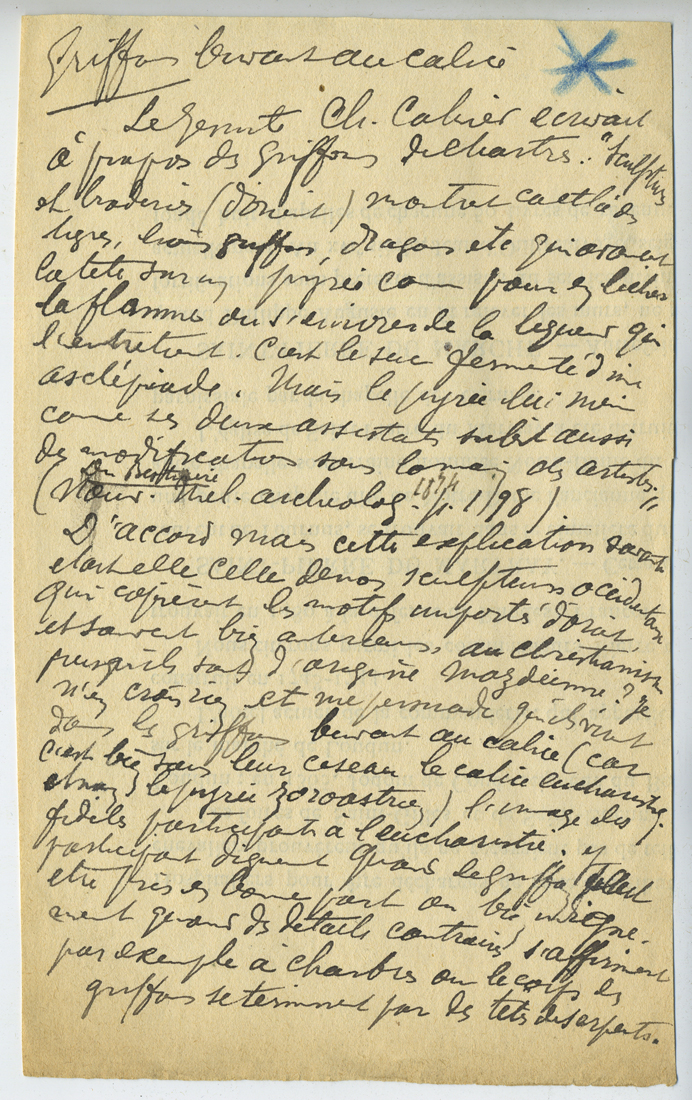 Griffons buvant au calice
Le Jesuite Ch. Cahier ecrivait
à propos des griffons de Chartres : "Sculptures
et broderies (d'orient) montrent ça et là des
tigres, lions griffons, dragons etc qui avancent
la tete sur un pyrée comme pour en lècher
la flamme ou s'enivrer de la liqueur qui
l'entretient. C'est le suc fermenté d'une
asclépiade. Mais le pyrée lui meme
comme ses deux assistants subit aussi
des modifications sous la main des artistes."
Du Bestiaire
(Nouv. Mel. archeolog. 1874 p. 198).
D'accord mais cette explication savante
etait elle celle de nos sculpteurs occidentaux
qui copièrent les motifs importés d'orient,
et souvent bien anterieurs au christianisme
puisqu'ils sont d'origine mazdéenne? Je
n'en crois rien et me persuade qu'ils virent
dans les griffons buvant au calice (car
c'est bien sous leur ciseau le calice eucharistiq.
et non le pyrée zoroastrien) l'image des
fidèles participant à l'eucharistie. Y
participant dignement quand le griffon peut
etre pris en bonne part ou bien indigne-
ment quand des détails contraires s'affirment
par exemple à Chartres ou le corps des
griffons se terminent par des têtes de serpents.